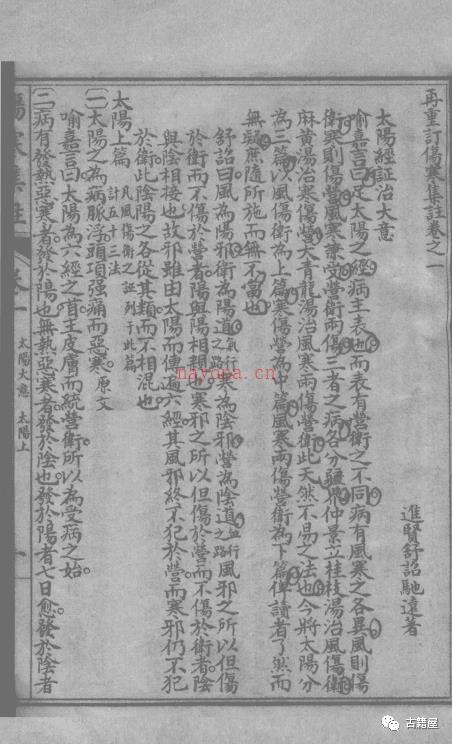 再重訂傷寒集註卷之一
進賢舒詔馳遠著
太陽經証治大意
喻嘉言曰足太陽之經病主表也而表有營衛之不同病有風寒之各異風則傷
衛寒則傷營風寒兼受營衛兩傷三者之病各分疆界仲景立桂枝湯治風傷衛
麻黃湯治寒傷營大青龍湯治風寒兩傷營衛此天然不易之法也今將太陽分
為三篇以風傷衛為上篇寒傷營為中篇風寒兩傷營衛為下篇俾讀者了然而
無疑焉隨所施而無不當也
舒詔曰風為陽邪衛為陽道氣行之路寒為陰邪營為陰道血行之路風邪之所以但傷
於衛而不傷於營者陽與陽相親也寒邪之所以但傷於營而不傷於衛者陰
與陰相接也故邪雖由太陽而傳遍六經其風邪終不犯於營而寒邪仍不犯
於衛此陰陽之各從其類而不相混也
太陽上篇 凡風傷衛之証列于此篇計五十三法
(一)太陽之為病脈浮頭項強痛而惡寒原文
喻嘉言曰太陽為六經之首主皮膚而統營衛所以為受病之始
二病有發熱惡寒者發於陽也無熱惡寒者發於陰也發於陽者七日愈發於陰者
傷寒集註 卷一 太陽大意 太陽上 一
nayona.cn
古籍屋